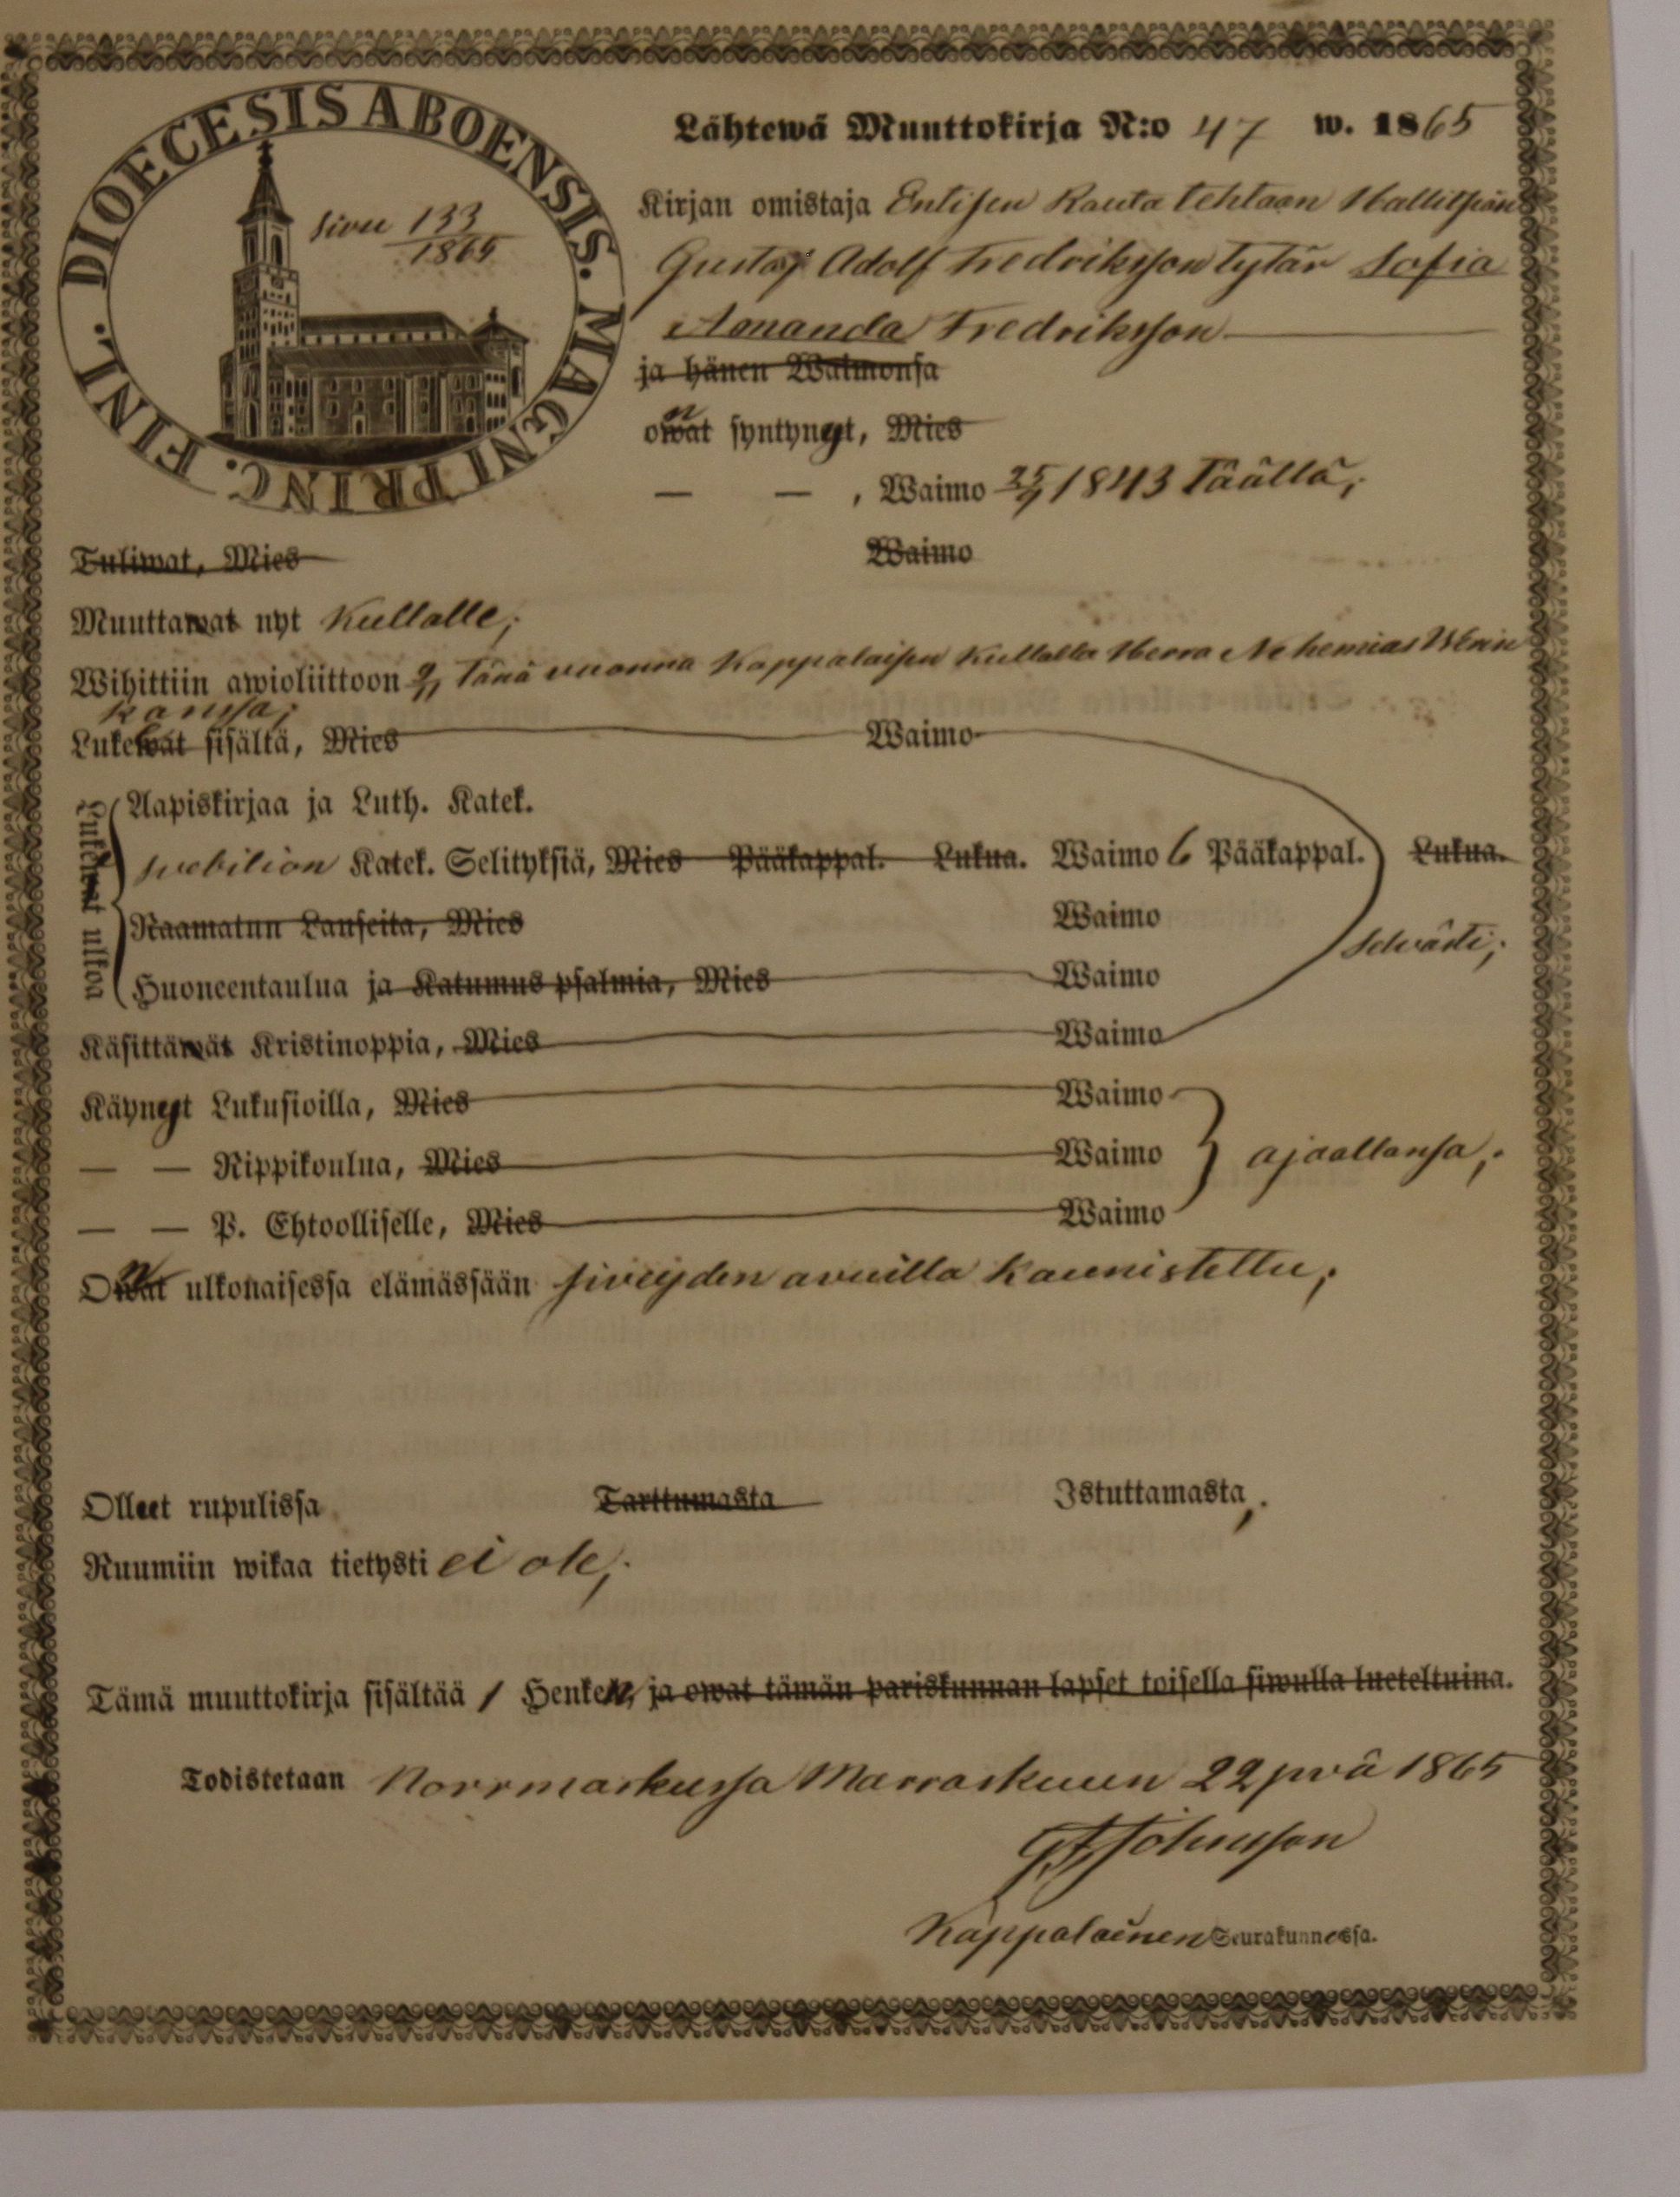 DIOECESIS ABOENSIS. MAGNI PRINC. FINL.
Sivu 133
1865
Lähtewä Muuttokirja N:o 47 w. 1865
Kirjan omistaja Entisen Rauta tehtaan Hallitsian
Gustaf Adolf Fredriksson tytär Sofia
Amanda Fredriksson
ja hänen Waimonsa
owat syntynyt, Mies
— — , Waimo 25/9 1843 Täällä;
Tuliwat, Mies Waimo
Muuttawat nyt Kullalle;
Wihittiin awioliittoon 9/11 Tänä vuonna Kappalaisen Kullalla Herra Nehemias
kanssa;
Lukewat sisältä, Mies Waimo
Lukewat ulkoa
Aapiskirjaa ja Luth. Katek.
Svebilion Katek. Selityksiä, Mies Pääkappal. Lukua. Waimo 6 Pääkappal. Lukua.
Raamatun Lauseita, Mies Waimo
selvästi;
Huoneentaulua ja Katumus psalmia, Mies Waimo
Käsittäwät Kristinoppia, Mies Waimo
Käynyt Lukusioilla, Mies Waimo
— — Rippikoulua, Mies Waimo ajaallansa;
— — P. Ehtoolliselle, Mies Waimo
Owat ulkonaisessa elämässään siveyden avuilla kaunistettu;
Olleet rupulissa Tarttumasta Istuttamasta;
Ruumiin wikaa tietysti ei ole;
Tämä muuttokirja sisältää 1 Henken, ja owat tämän pariskunnan lapset toisella siwulla lueteltuina.
Todistetaan Norrmarkussa Marraskuun 22 pvä 1865
Johnsson
Kappalainen Seurakunnassa.